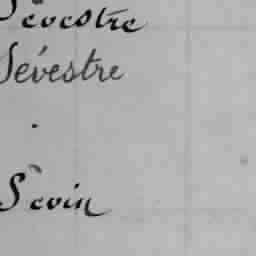 Sévestre
Sévestre
Sevin